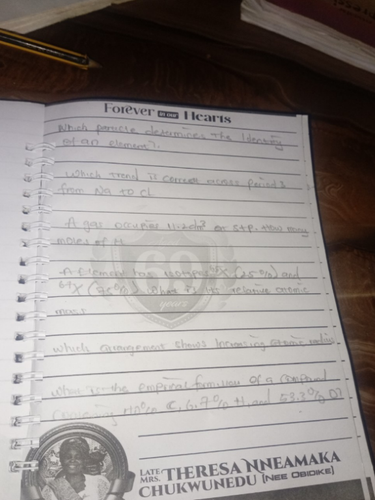 Forever IN OUR Hearts
Which particle determines the Identity
of an element?
which trend is correct across period 3
from Na to cl
A gas occupies 11.2dm³ at s.t.p. How many
moles of
A Element has isotopes (25%) and
X (75%). What is its relative atomic
mass
60
years
which arrangement shows Increasing atomic radius
what is the empirical formula of a compound
containing 40% C, 6.7% H, and 53.3% O?
LATE MRS. THERESA NNEAMAKA
CHUKWUNEDU (NEE OBIDIKE)